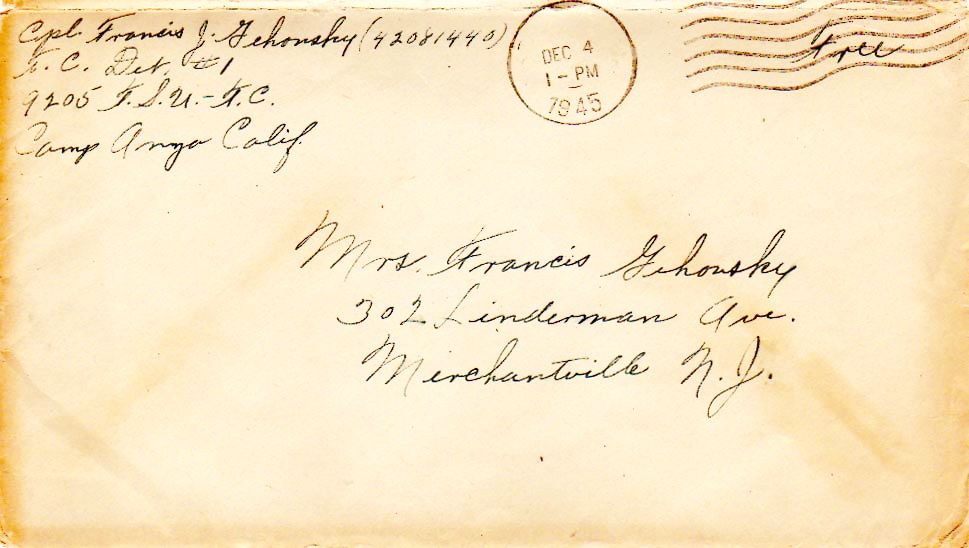 Cpl. Francis J. Gehousky (42081440)
T. C. Det. #1
9205 T.S.U.-T.C.
Camp Anza Calif.
DEC 4
1-PM
1945
Free
Mrs. Francis Gehousky
302 Linderman Ave.
Merchantville N.J.